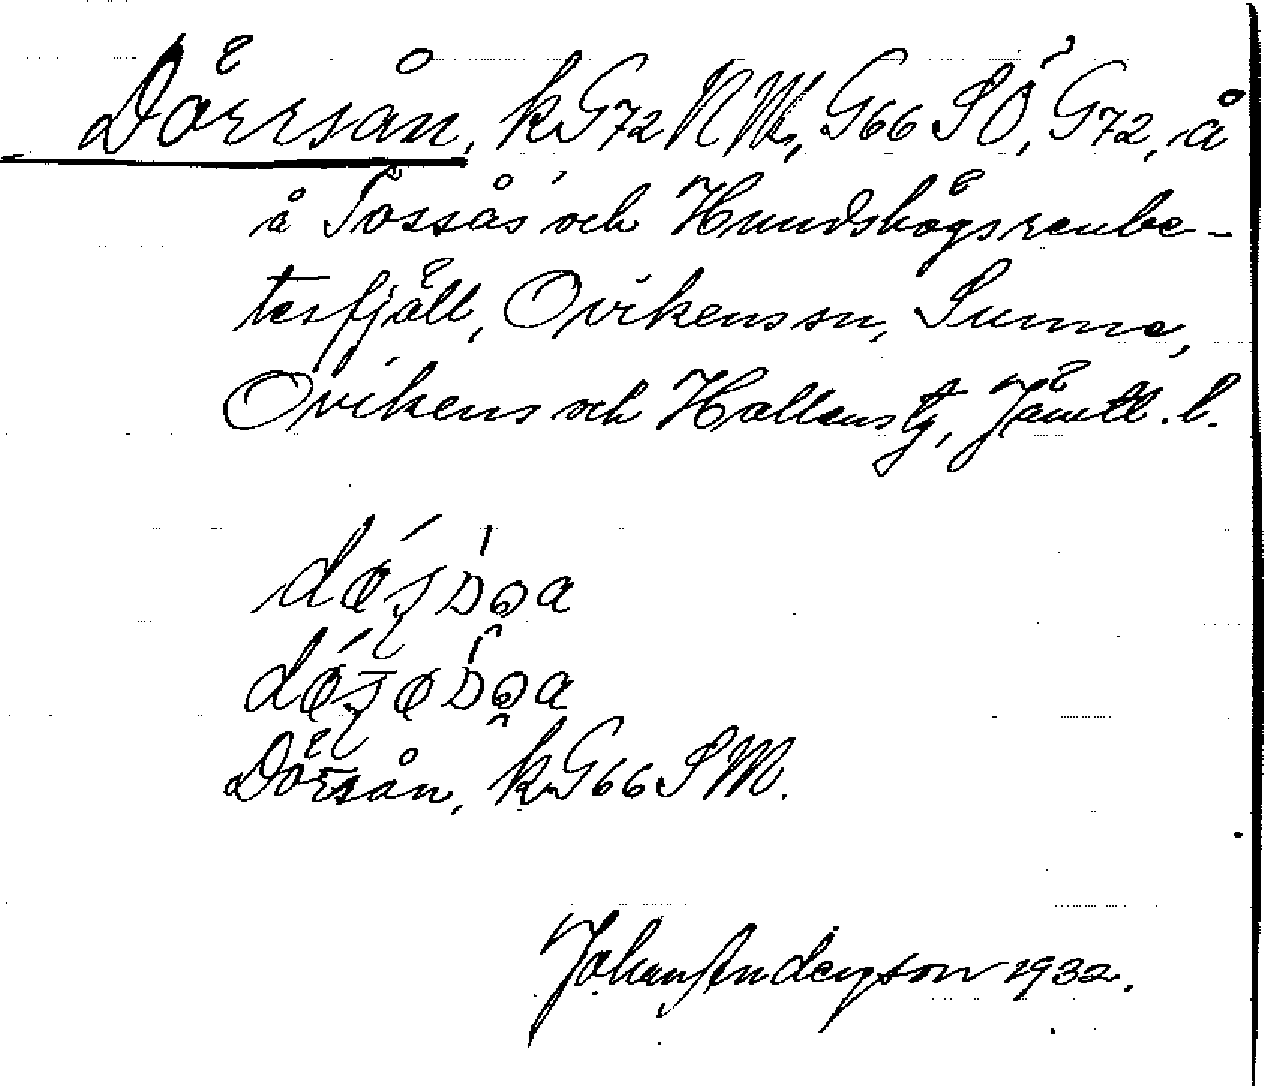 Dörrsån, k G72 NM, G66 SÖ, G72, å
å Tossås och Hundshögsrenbe-
tesfjäll, Ovikens sn, Sunne,
Ovikens och Hallens tg, Jämtl. l.
Dörrsån, k G66 SM.
Johan Anderson 1932.